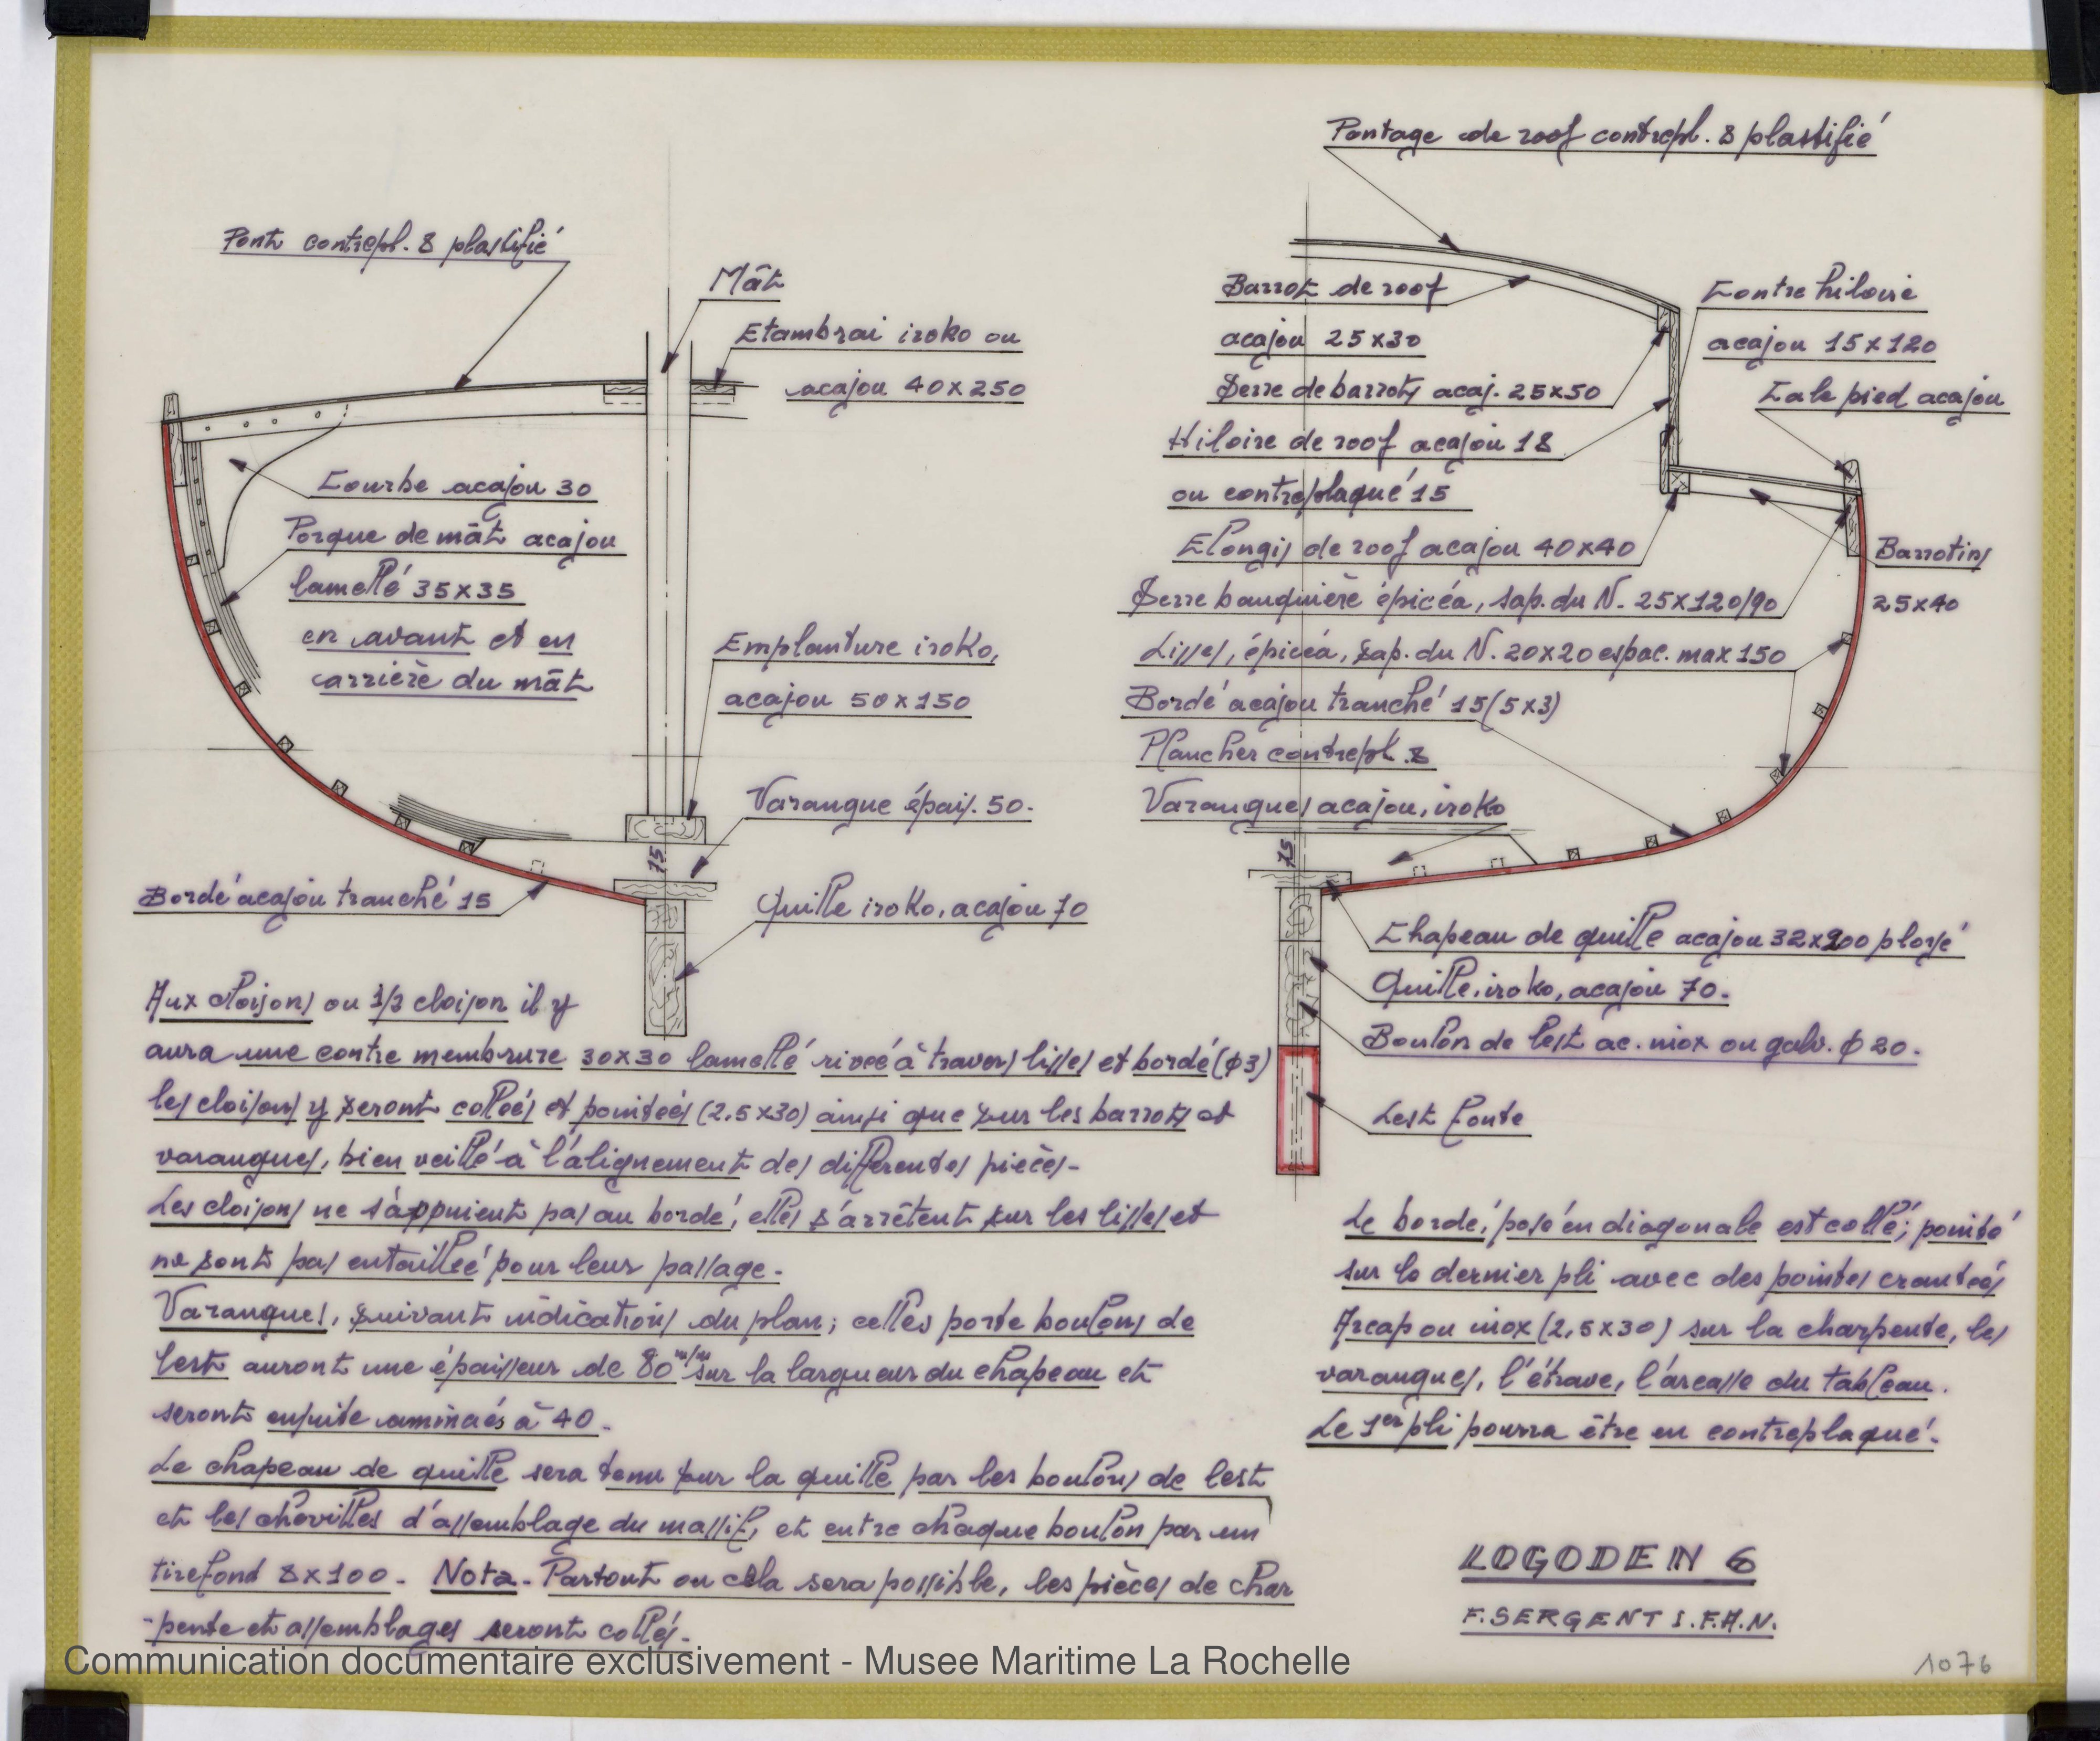 Pont contrepl. 8 plastifié
Mât
Etambrai iroko ou
acajou 40x250
Courbe acajou 30
Porque de mât acajou
lamellé 35x35
en avant et en
arrière du mât
Emplanture iroko,
acajou 50x150
Varangue épais. 50.
75
Bordé acajou tranché 15
Quille iroko, acajou 70
Pontage de roof contrepl. 8 plastifié
Barrot de roof
acajou 25x30
Serre de barrots acaj. 25x50
Hiloire de roof acajou 18
ou contreplaqué 15
Elongis de roof acajou 40x40
Serre bauquière épicéa, sap. du N. 25x120/90
Lisses, épicéa, sap. du N. 20x20 espac. max 150
Bordé acajou tranché 15 (5x3)
Plancher contrepl. 8
Varangues acajou, iroko
Contre hiloire
acajou 15x120
Cale pied acajou
Barrotins
25x40
75
Chapeau de quille acajou 32x200 ployé
Quille, iroko, acajou 70.
Boulon de lest ac. inox ou galv. ϕ 20.
Lest fonte
Aux cloisons ou 1/2 cloison il y
aura une contre membrure 30x30 lamellé riveé à travers lisses et bordé (ϕ3)
les cloisons y seront colleés et pointeés (2,5x30) ainsi que sur les barrots et
varangues, bien veillé à l'alignement des differentes pièces-
Les cloisons ne s'appuient pas au bordé, elles s'arrêtent sur les lisses et
ne sont pas entailleé pour leur passage-
Varangues, suivant indications du plan; celles porte boulons de
lest auront une épaisseur de 80 m/m sur la largueur du chapeau et
seront ensuite amincés à 40-
Le chapeau de quille sera tenu sur la quille par les boulons de lest
et les chevilles d'assemblage du massif, et entre chaque boulon par un
tirefond 8x100- Nota- Partout ou cela sera possible, les pièces de char
-pente et assemblages seront collés-
Le bordé, posé en diagonale est collé; pointé
sur le dernier pli avec des pointes cranteés
Arcap ou inox (2,5x30) sur la charpente, les
varangues, l'étrave, l'arcasse du tableau.
Le 1er pli pourra être en contreplaqué.
LOGODEN 6
F. SERGENT I.F.A.N.
1076
Communication documentaire exclusivement - Musee Maritime La Rochelle